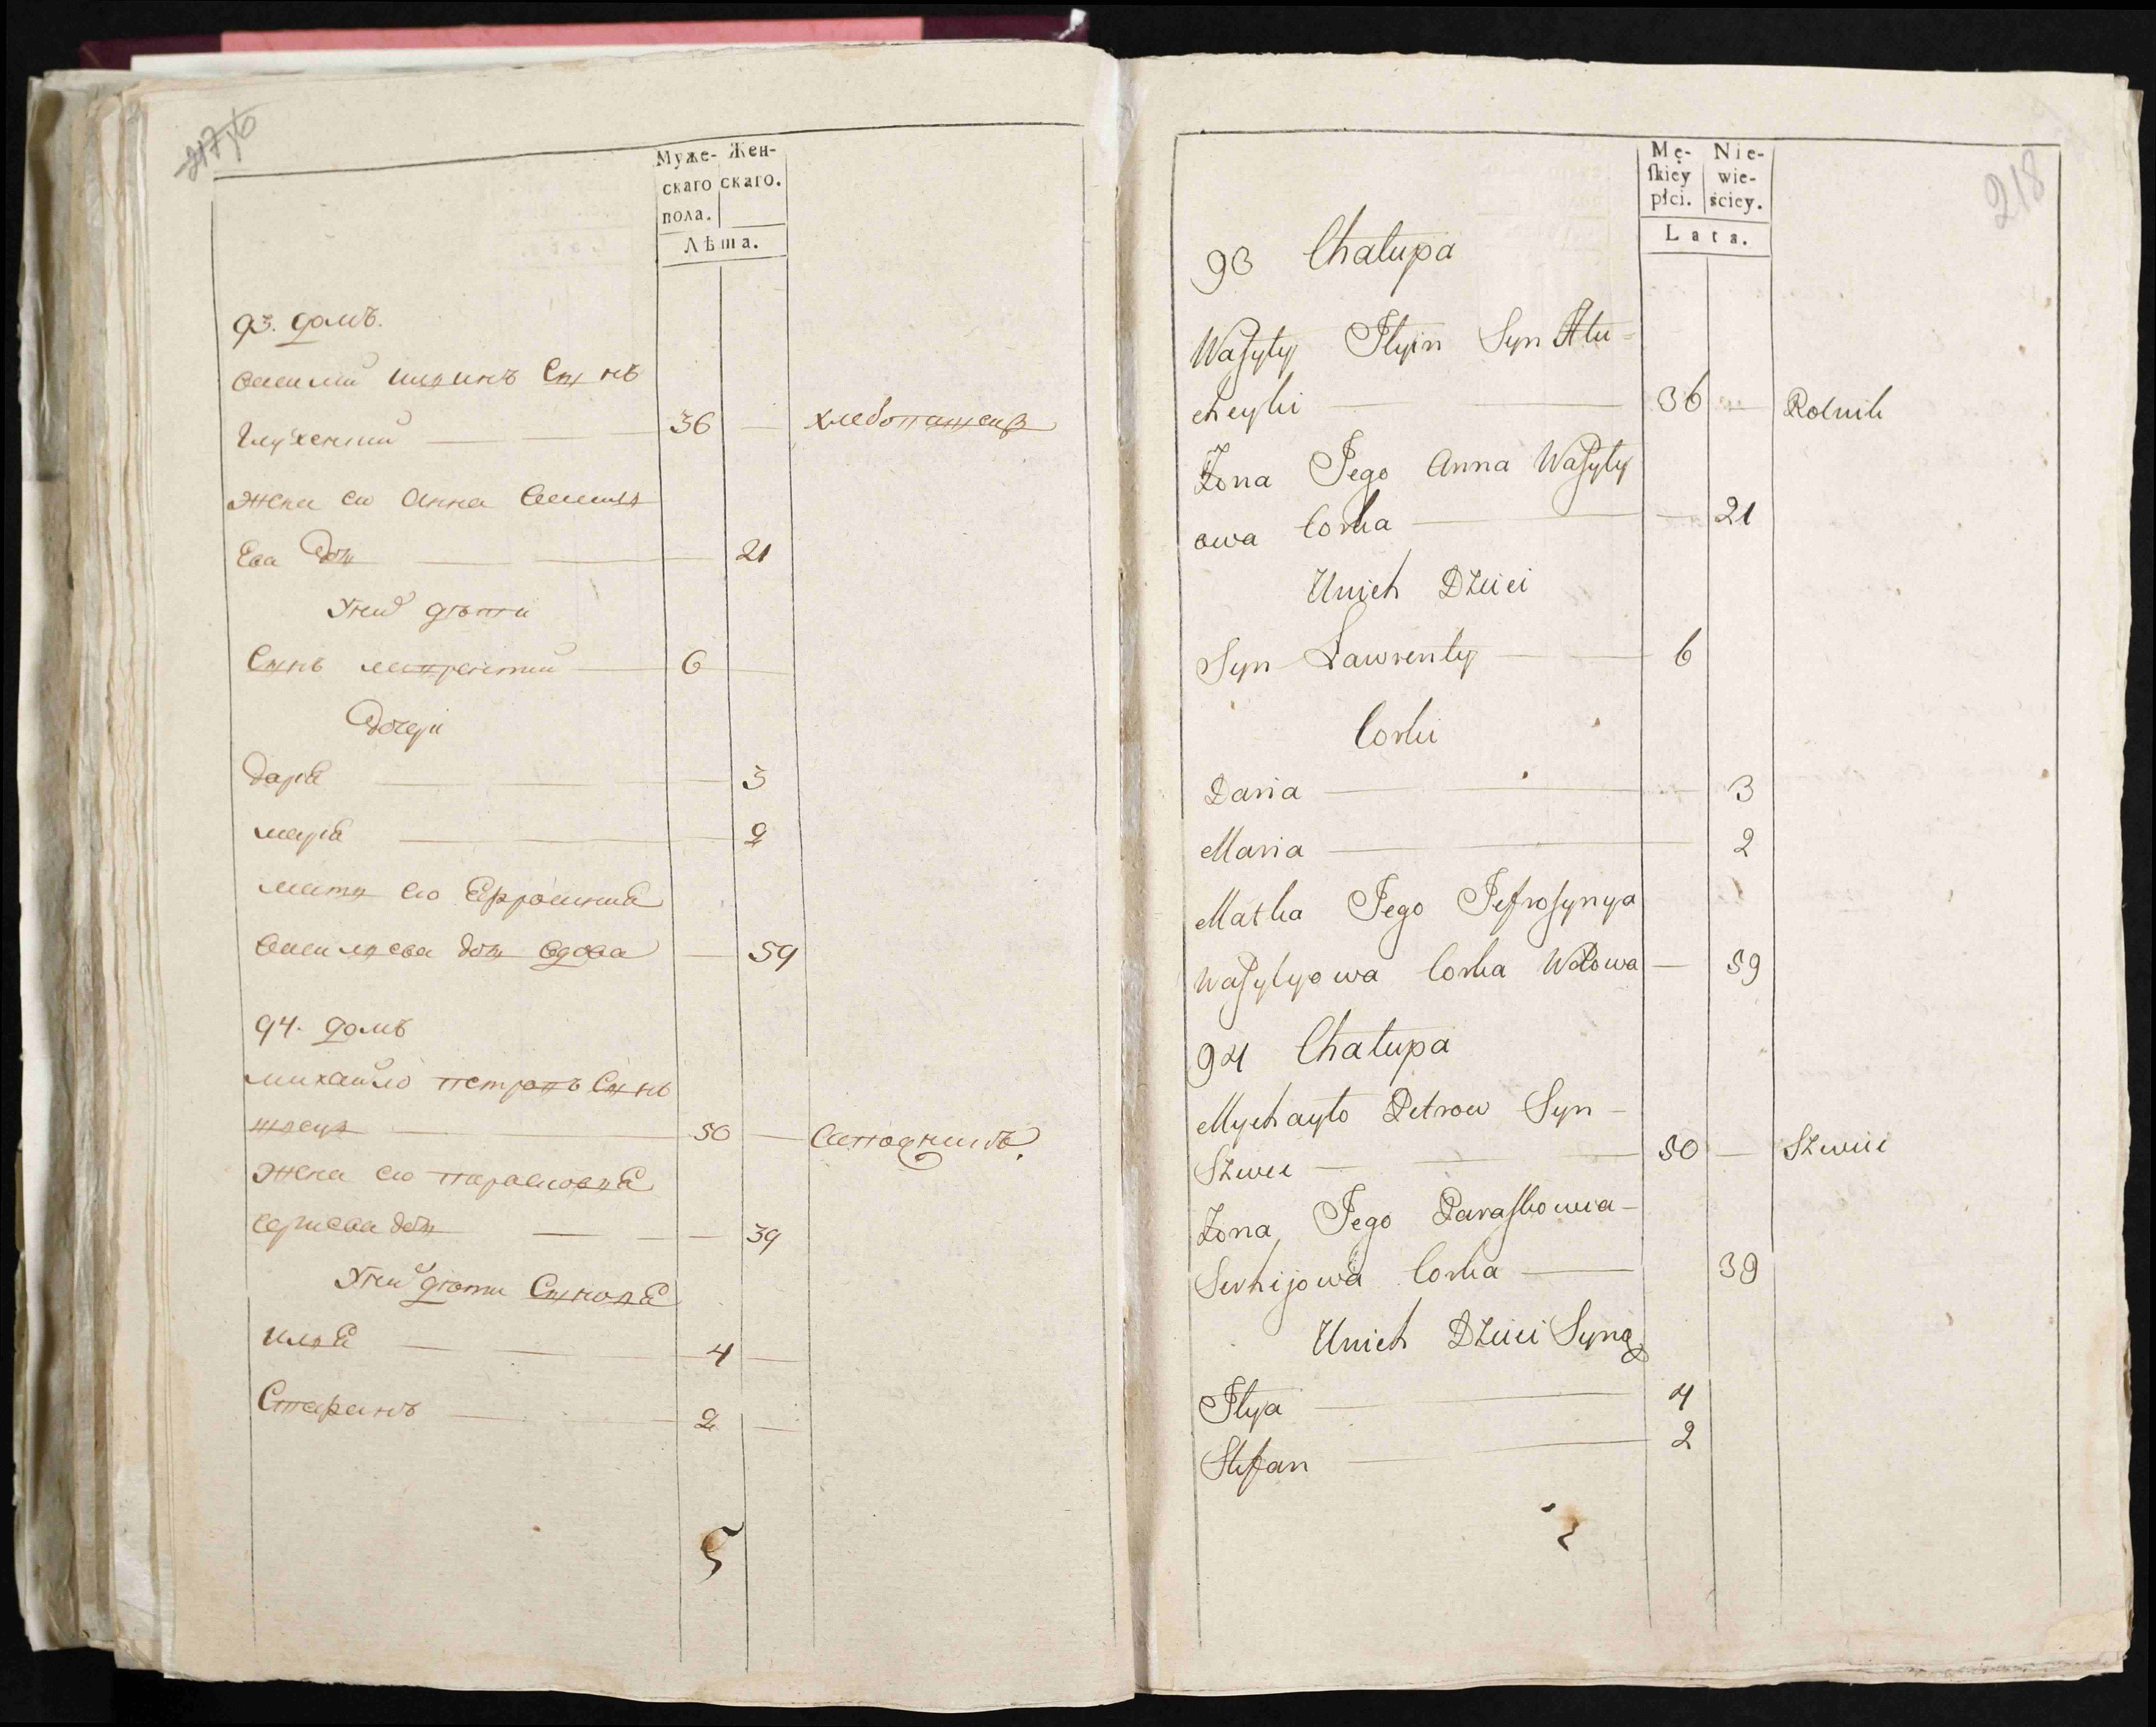 217об
Муже- Жен-
скаго скаго.
пола.
Лѣта.
93. домъ.
василий илинъ Сынъ
Глухенкий 36 — хлебопашецъ
Жена его Анна Василь
Ева Доч 21
У них дѣти
Сынъ лаврентий 6 —
Дочери
Дарія 3
марія 2
мати его Ефросиния
василева доч вдова — 59
94. домъ
михайло петровъ Сынъ
швец 50 — Сапожникъ.
Жена его парасковия
сергиева доч — 39
У них дѣти Синовя
Иля 4 —
Стефанъ 2 —
218
Mę- Nie-
ſkiey wie-
płci. ściey.
Lata.
93 Chalupa
Waſyly Jlyin Syn Hlu=
cheyki 36 — Rolnik
Zona Jego Anna Waſyly
owa Corka — 21
Unich Dzieci
Syn Lawrenty 6
Corki
Daria 3
Maria 2
Matka Jego Jefroſynya
Waſylyowa Corka Wdowa — 59
94 Chalupa
Mychayło Petrow Syn —
Szwec 50 — Szwiec
Zona Jego Paraſkowia —
Serhijowa Corka 39
Unich Dzieci Syny
Jlya 4
Stefan 2